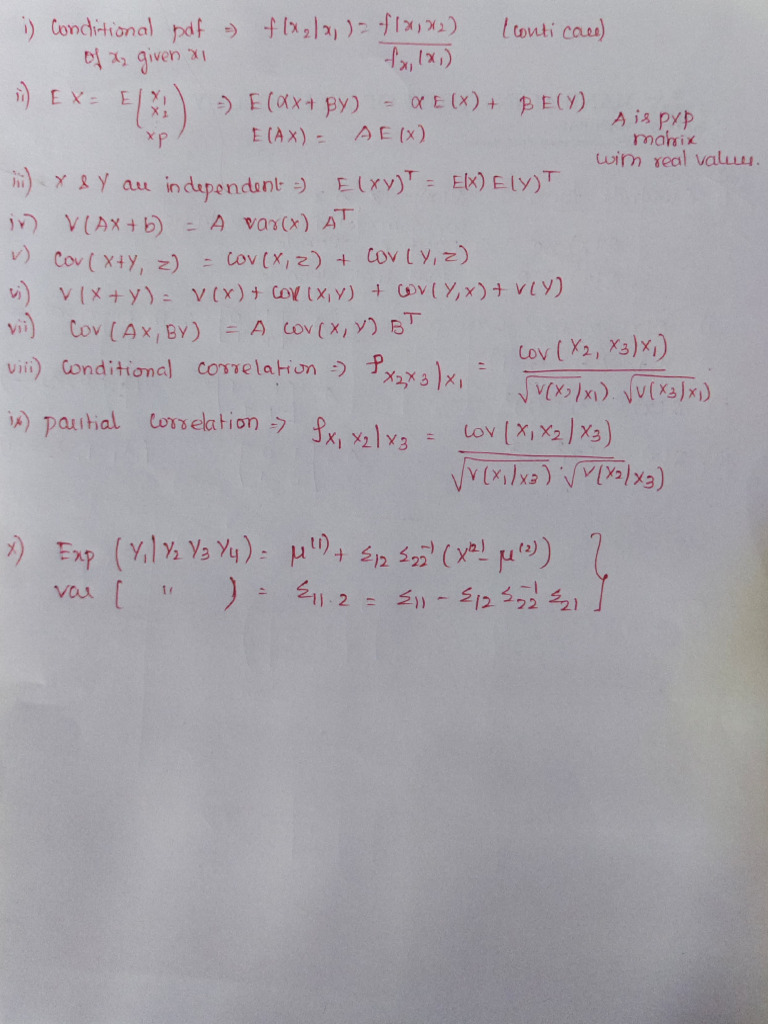 i) Conditional pdf ⇒ f(x₂|x₁) = f(x₁,x₂) / fₓ₁(x₁) (conti case)
of x₂ given x₁
ii) EX = E(x₁ x₂ ⋮ xp) ⇒ E(αX + βY) = α E(X) + β E(Y)
E(AX) = A E(X)
A is pxp
matrix
with real values.
iii) X & Y are independent ⇒ E(XY)ᵀ = E(X) E(Y)ᵀ
iv) V(AX + b) = A var(x) Aᵀ
v) Cov(X+Y, Z) = Cov(X,Z) + Cov(Y,Z)
vi) V(X+Y) = V(X) + Cov(X,Y) + Cov(Y,X) + V(Y)
vii) Cov(AX, BY) = A Cov(X,Y) Bᵀ
viii) Conditional correlation ⇒ ρ x₂,x₃|x₁ = Cov(X₂, X₃|X₁) / √V(X₂|X₁) . √V(X₃|X₁)
ix) partial Correlation ⇒ ρ x₁ x₂|x₃ = Cov(X₁ X₂|X₃) / √V(X₁|X₃) . √V(X₂|X₃)
x) Exp (Y₁|Y₂ Y₃ Y₄) = μ⁽¹⁾ + Σ₁₂ Σ₂₂⁻¹ (X⁽²⁾ - μ⁽²⁾) }
var ( " ) = Σ₁₁.₂ = Σ₁₁ - Σ₁₂ Σ₂₂⁻¹ Σ₂₁